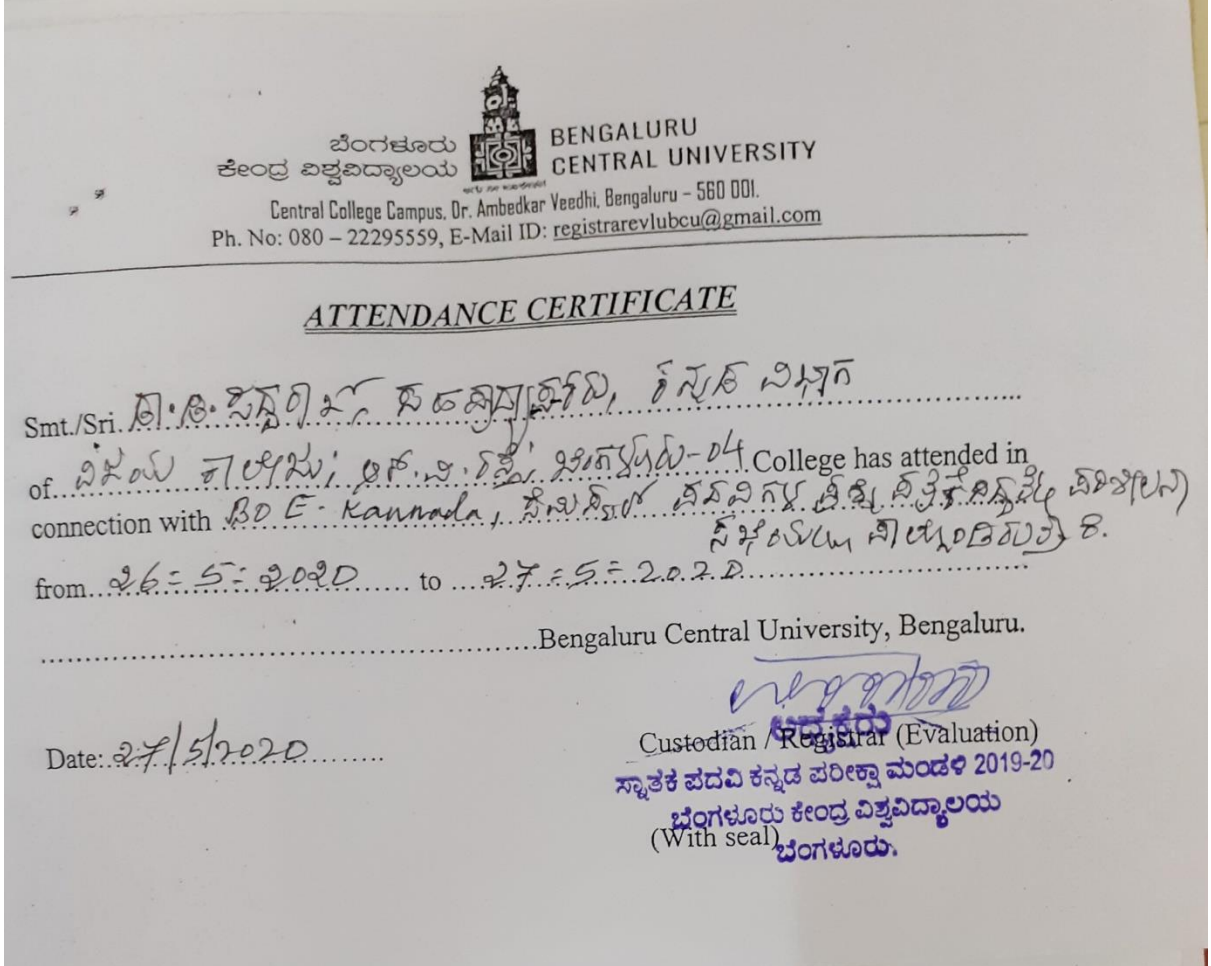 ಬೆಂಗಳೂರು
ಕೇಂದ್ರ ವಿಶ್ವವಿದ್ಯಾಲಯ
BENGALURU
CENTRAL UNIVERSITY
Central College Campus, Dr. Ambedkar Veedhi, Bengaluru – 560 001.
Ph. No: 080 – 22295559, E-Mail ID: registrarevlubcu@gmail.com
ATTENDANCE CERTIFICATE
Smt./Sri. ಡಾ. ಕನ್ನಡ ವಿಭಾಗ
of ವಿಜಯ ಕಾಲೇಜು, ಆರ್.ವಿ. ರಸ್ತೆ, ಬೆಂಗಳೂರು-04 College has attended in
connection with BOE- Kannada, ಸೆಮಿಸ್ಟರ್ ಪದವಿಗಳ ಪ್ರಶ್ನೆ ಪರಿಶೀಲನಾ
ಸಭೆಯಲ್ಲಿ ಪಾಲ್ಗೊಂಡಿರುತ್ತಾರೆ.
from 26-5-2020 to 27-5-2020
Bengaluru Central University, Bengaluru.
Date: 27/5/2020
ಅಧ್ಯಕ್ಷರು
Custodian / Registrar (Evaluation)
ಸ್ನಾತಕ ಪದವಿ ಕನ್ನಡ ಪರೀಕ್ಷಾ ಮಂಡಳಿ 2019-20
ಬೆಂಗಳೂರು ಕೇಂದ್ರ ವಿಶ್ವವಿದ್ಯಾಲಯ
(With seal)
ಬೆಂಗಳೂರು.